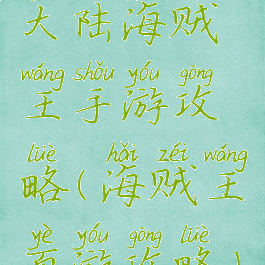 大陆海贼
wáng shǒu yóu gōng
王手游攻
lüè hǎi zéi wáng
略(海贼王
yè yóu gōng lüè
页游攻略)